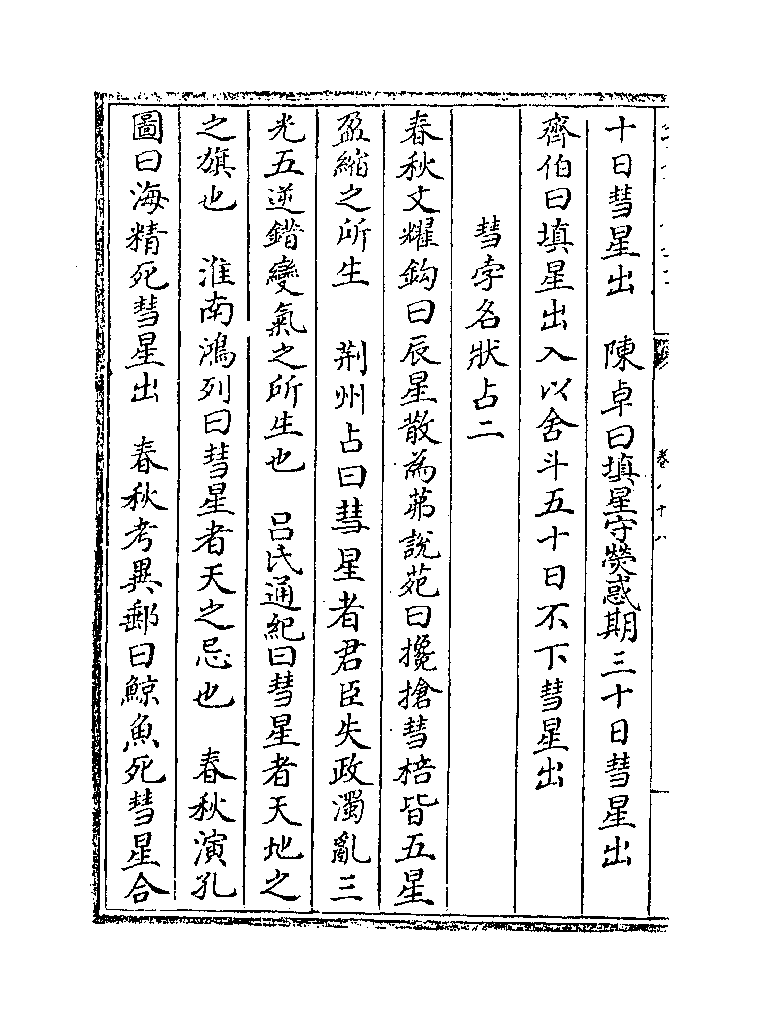 十日彗星出　陳卓曰填星守熒惑期三十日彗星出
齊伯曰填星出入以舍斗五十日不下彗星出
彗孛名狀占二
春秋文耀鈎曰辰星散為茀說苑曰攙搶彗棓皆五星
盈縮之所生　荆州占曰彗星者君臣失政濁亂三
光五逆錯變氣之所生也　吕氏通紀曰彗星者天地之
之旗也　淮南鴻列曰彗星者天之忌也　春秋演孔
圖曰海精死彗星出　春秋考異郵曰鯨魚死彗星合